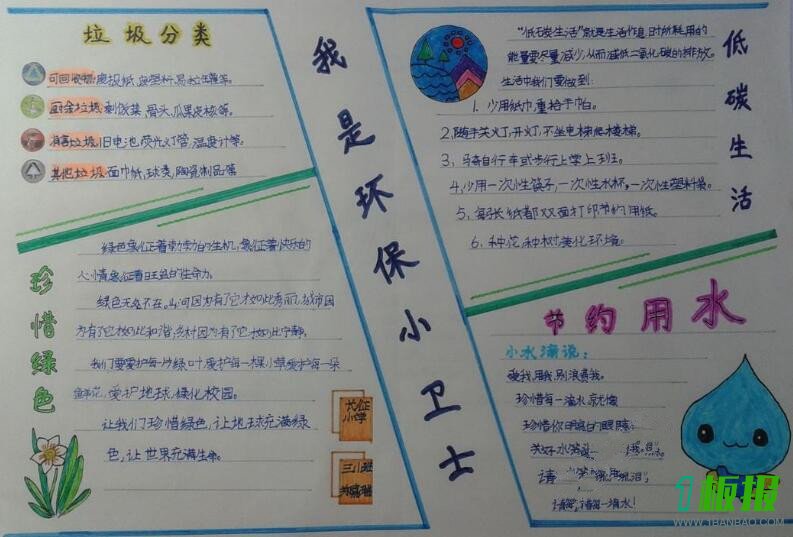 垃圾分类
可回收物:废报纸,废塑料,易拉罐等。
厨余垃圾:剩饭菜 骨头,瓜果皮核等。
有害垃圾,旧电池,荧光灯管,温度计等。
其他垃圾,面巾纸,球类,陶瓷制品等
珍惜绿色
绿色象征着勃勃的生机,象征着快乐的
心情,象征着旺盛的生命力。
绿色无处不在。山河因为有了它才如此秀丽,城市因
为有了它才如此和谐,乡村因为有了它才如此宁静。
我们要爱护每一片绿叶,爱护每一棵小草,爱护每一朵
鲜花,爱护地球,绿化校园。
让我们珍惜绿色,让地球充满绿
色,让世界充满生命。
长征
小学
三八班
我是环保小卫士
低碳生活
“低碳生活”就是生活作息时所耗用的
能量要尽量减少,从而减低二氧化碳的排放。
生活中我们要做到:
1、少用纸巾,重拾手巾。
2,随手关灯,开灯,不坐电梯爬楼梯。
3、骑自行车或步行上学上班。
4,少用一次性筷子,一次性水杯,一次性塑料袋。
5、每张纸都双面打印节约用纸。
6、种花,种树美化环境。
节约用水
小水滴说:
爱我,用我,别浪费我。
珍惜每一滴水,就像
珍惜你明亮的眼睛
关好水
请
惜每一滴水!
1板报
WWW.1BANBAO.COM